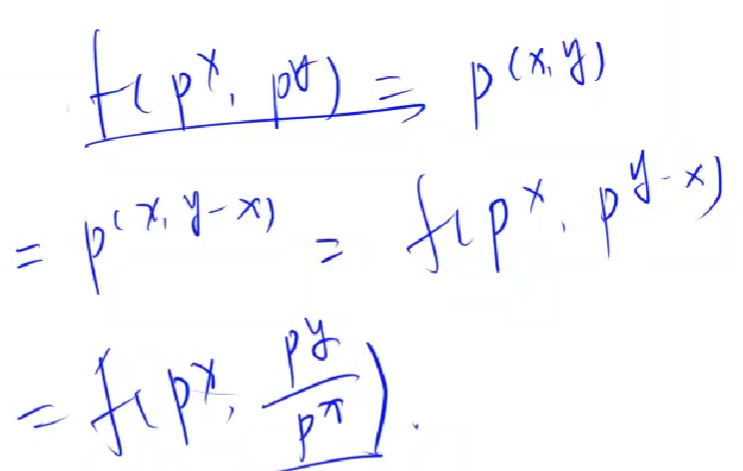 f(p^x, p^y) = p^{(x,y)}
= p^{(x, y-x)} = f(p^x, p^{y-x})
= f(p^x, \frac{p^y}{p^x}).